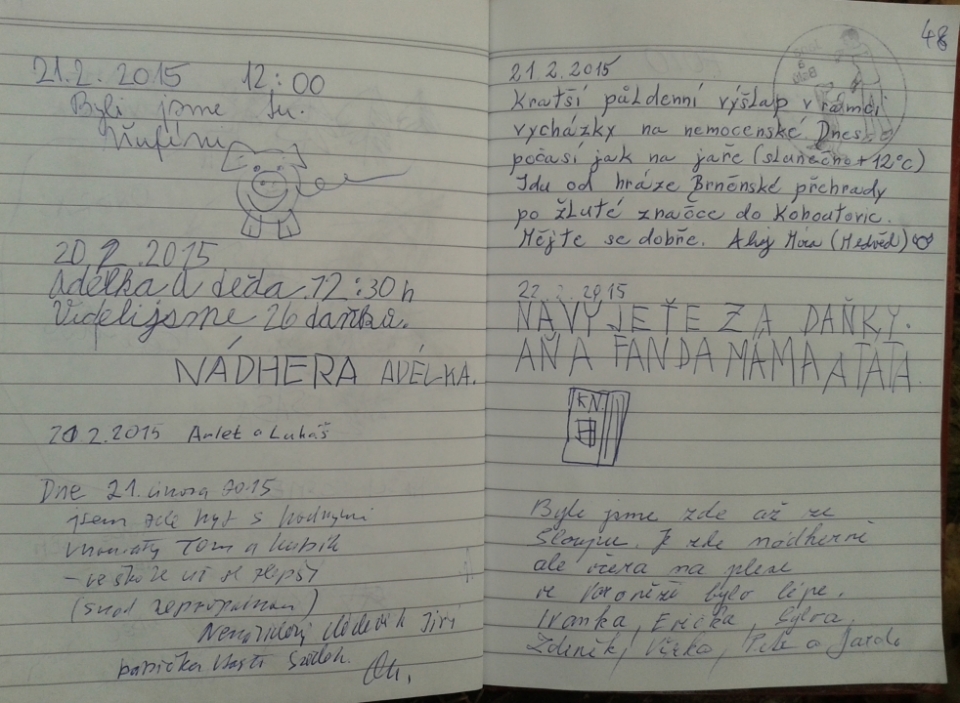 21.2. 2015 12:00
Byli jsme tu.
Ňufíni
20.2.2015
Adélka a děda 12:30 h
Viděli jsme 26 daňků.
NÁDHERA ADÉLKA.
2015 a Lukáš
Dne 21. února 2015
jsem zde byl s hodnými
vnoučaty Tom a Kubík
- ve škole už se zlepší
(snad nepropadnou)
dědeček Jiří
babička
48
21 2. 2015
Kratší půldenní výšlap v rámci
vycházky na nemocenské. Dnes
počasí jak na jaře (slunečno +12°C)
Jdu od hráze Brněnské přehrady
po žluté značce do Kohoutovic.
Mějte se dobře. Ahoj Míra (Medvěd)
22. 2. 2015
NAVYJEŤE ZA DAŇKY.
AŇA FANDA MÁMA A TÁTA
KN.
Byli jsme zde až ze
Sloupu. Je zde nádherně
ale včera na plese
v bylo lépe.
Ivanka, Erička, Sylva,
Zdeněk, Věrka, a Jarda